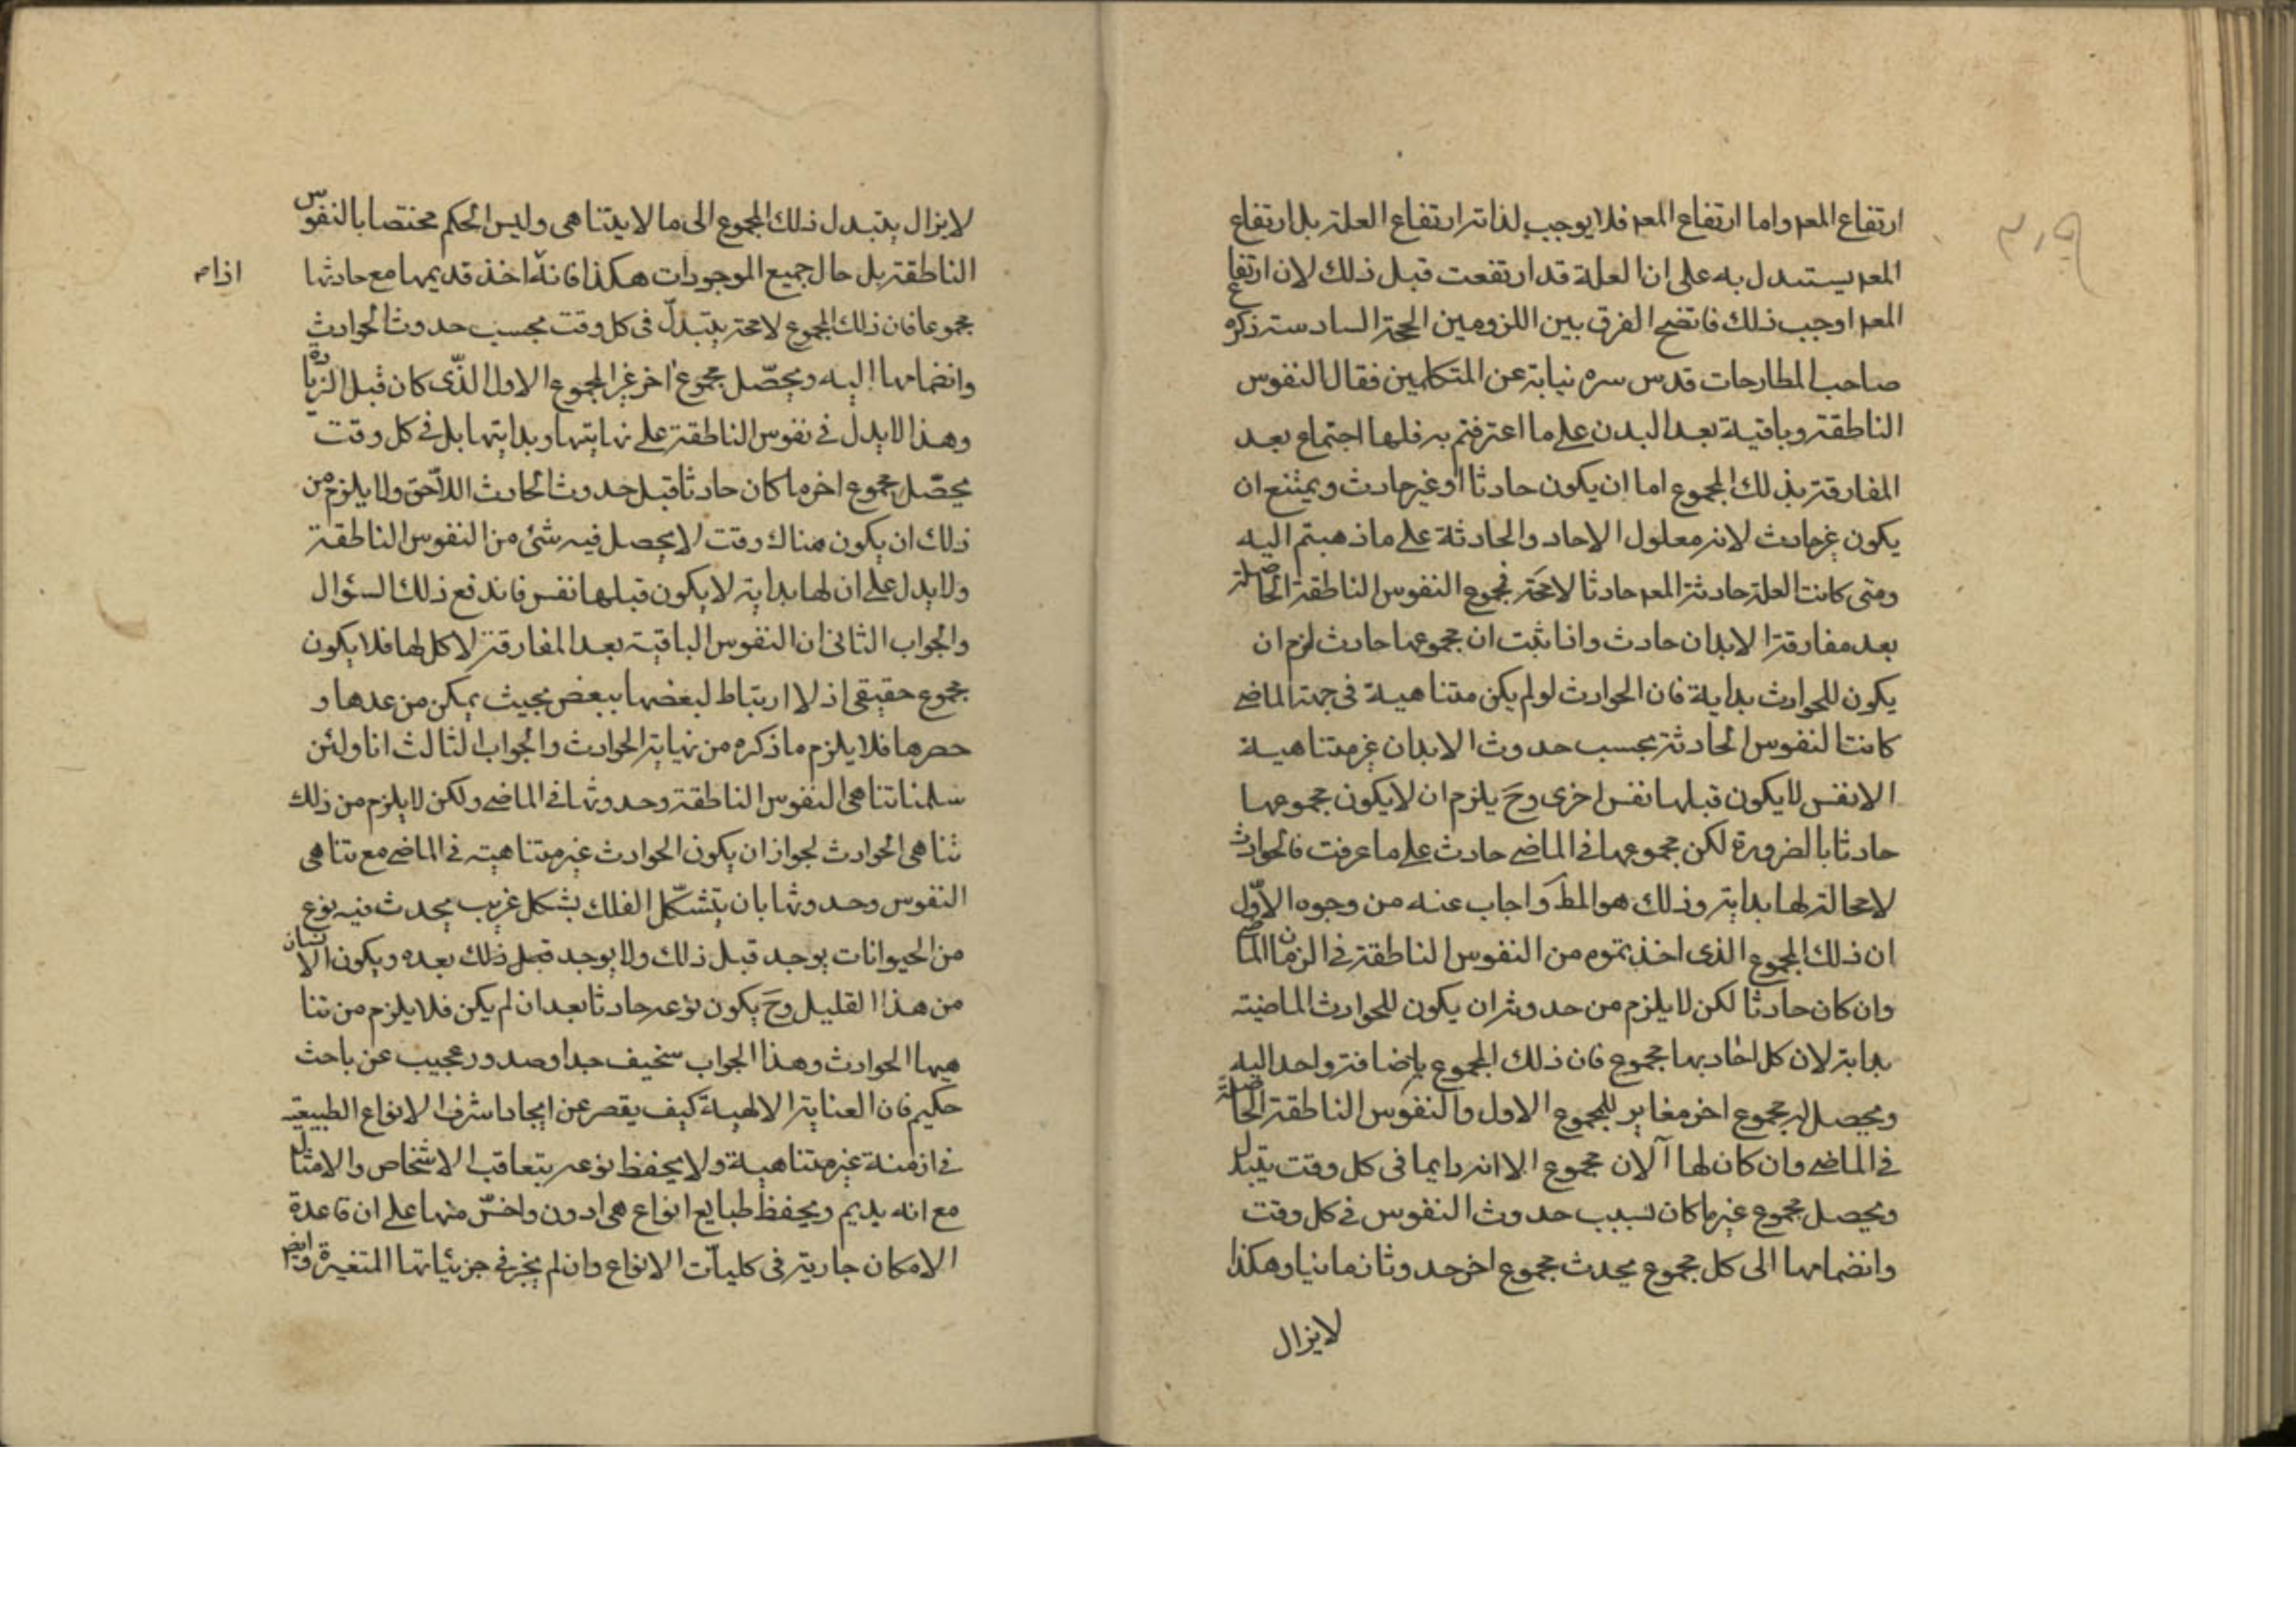 ارتفاع المعه واما ارتفاع المعه فلا يوجب لذاته ارتفاع العلة بل ارتفاع
المعه يستدل به على ان العلة قد ارتفعت قبل ذلك لان ارتفاع
المعه اوجب ذلك فاتضح الفرق بين اللزومين الحجة السادسة ذكره
صاحب المطارحات قدس سره نيابة عن المتكلمين فقال النفوس
الناطقة وباقية بعد البدن على ما اعترفتم به فلها اجتماع بعد
المفارقة بذلك المجموع اما ان يكون حادثا او غير حادث ويمتنع ان
يكون غير حادث لانه معلول الاحاد والحادثة على ما ذهبتم اليه
ومتى كانت العلة حادثة المعه حادثا لامحة فمجموع النفوس الناطقة الحاصلة
بعد مفارقة الابدان حادث واذا ثبت ان مجموعها حادث لزم ان
يكون للحوادث بداية فان الحوادث لو لم يكن متناهية فى جهة الماضى
كانت النفوس الحادثة بحسب حدوث الابدان غير متناهية
الا نفس لا يكون قبلها نفس اخرى وح يلزم ان لا يكون مجموعها
حادثا بالضرورة لكن مجموعها فى الماضى حادث على ما عرفت فالحوادث
لا محالة لها بداية وذلك هو المط واجاب عنه من وجوه الاوّل
ان ذلك المجموع الذى اخذتموه من النفوس الناطقة فى الزمان الماضى
وان كان حادثا لكن لا يلزم من حدوثه ان يكون للحوادث الماضية
بداية لان كل احاد بها مجموع فان ذلك المجموع باضافة واحد اليه
ويحصل له مجموع اخر مغاير للمجموع الاول والنفوس الناطقة الحاصلة
فى الماضى وان كان لها الآن مجموع الا انه دايما فى كل وقت يتبدل
ويحصل مجموع غير ما كان بسبب حدوث النفوس فى كل وقت
وانضمامها الى كل مجموع يحدث مجموع اخر حدوثا زمانيا وهكذا
لا يزال
لا يزال يتبدل ذلك المجموع الى ما لا يتناهى وليس الحكم مختصا بالنفوس
الناطقة بل حال جميع الموجودات هكذا فانه اخذ قديمها مع حادثها
اذا صـ
مجموعا فان ذلك المجموع لامحة يتبدلّ فى كل وقت بحسب حدوث الحوادث
وانضمامها اليه ويحصّل مجموع اخر غير المجموع الاول الذّى كان قبل الزيادة
وهذا لا يدل فى نفوس الناطقة على نهايتها وبدايتها بل فى كل وقت
يحصّل مجموع اخر ما كان حادثا قبل حدوث الحادث اللّاحق ولا يلزم من
ذلك ان يكون هناك وقت لا يحصل فيه شئ من النفوس الناطقة
ولا يدل على ان لها بداية لا يكون قبلها نفس فاندفع ذلك السؤال
والجواب الثانى ان النفوس الباقية بعد المفارقة لا كل لها فلا يكون
مجموع حقيقى اذ لا ارتباط لبعضها ببعض بحيث يمكن من عدها و
حصرها فلا يلزم ما ذكره من نهاية الحوادث والجواب الثالث انا ولئن
سلمنا تناهى النفوس الناطقة وحدوثها فى الماضى ولكن لا يلزم من ذلك
تناهى الحوادث لجواز ان يكون الحوادث غير متناهية فى الماضى مع تناهى
النفوس وحدوثها بان يتشكّل الفلك بشكل غريب يحدث فيه نوع
من الحيوانات يوجد قبل ذلك ولا يوجد قبل ذلك بعده ويكون الانسان
من هذا القليل وح يكون نوعه حادثا بعد ان لم يكن فلا يلزم من تنا
هيها الحوادث وهذا الجواب سخيف جدا وصدور عجيب عن باحث
حكيم فان العناية الالهية كيف يقصر عن ايجاد اشرف الانواع الطبيعية
فى ازمنة غير متناهية ولا يحفظ نوعه بتعاقب الاشخاص والامثال
مع انه يديم ويحفظ طبايع انواع هى ادون واخسّ منها على ان قاعدة
الامكان جارية فى كليات الانواع وان لم يجز فى جزئياتها المتغيرة وايضا